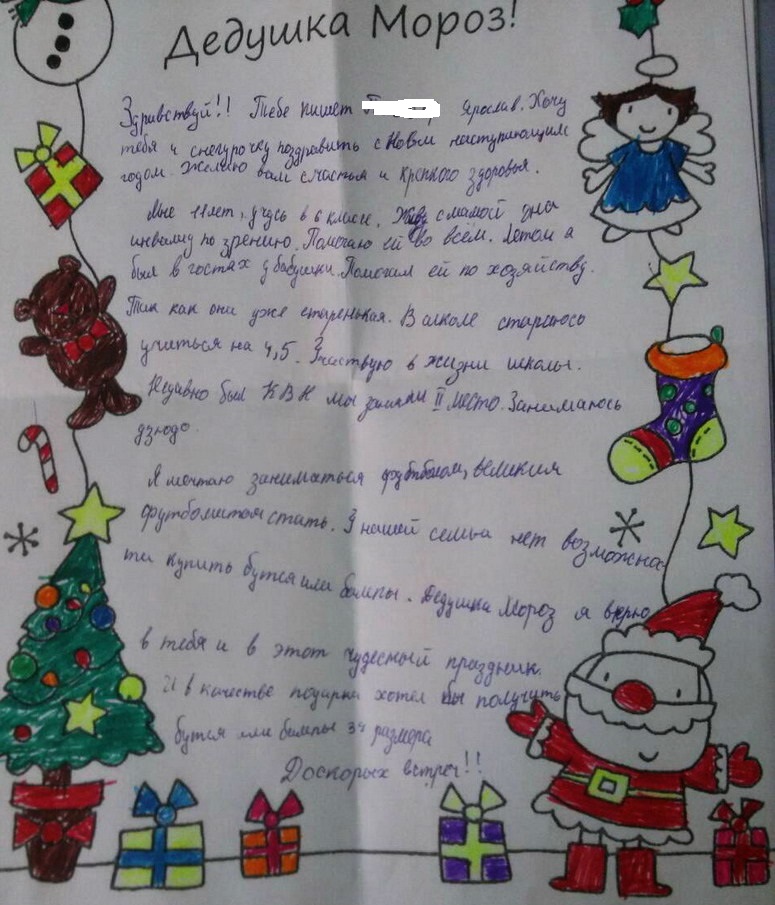 Дедушка Мороз!
Здравствуй!! Тебе пишет Ярослав. Хочу
тебя и снегурочку поздравить с Новым наступающим
годом. Желаю вам счастья и крепкого здоровья.
Мне 11 лет, учусь в 6 класе. Живу с мамой она
инвалид по зрению. Помогаю ей во всём. Летом я
был в гостях у бабушки. Помогал ей по хозяйству.
Так как они уже старенькая. В школе стараюсь
учиться на 4,5. Участвую в жизни школы.
Недавно был КВН мы заняли II место. Занимаюсь
дзюдо.
Я мечтаю заниматься футболом, великим
футболистом стать. У нашей семьи нет возможно-
ти купить бутсы или бампы. Дедушка Мороз я верю
в тебя и в этот чудесный праздник.
И в качестве подарка хотел бы получить
бутсы или бампы 34 размера
Доскорых встреч!!